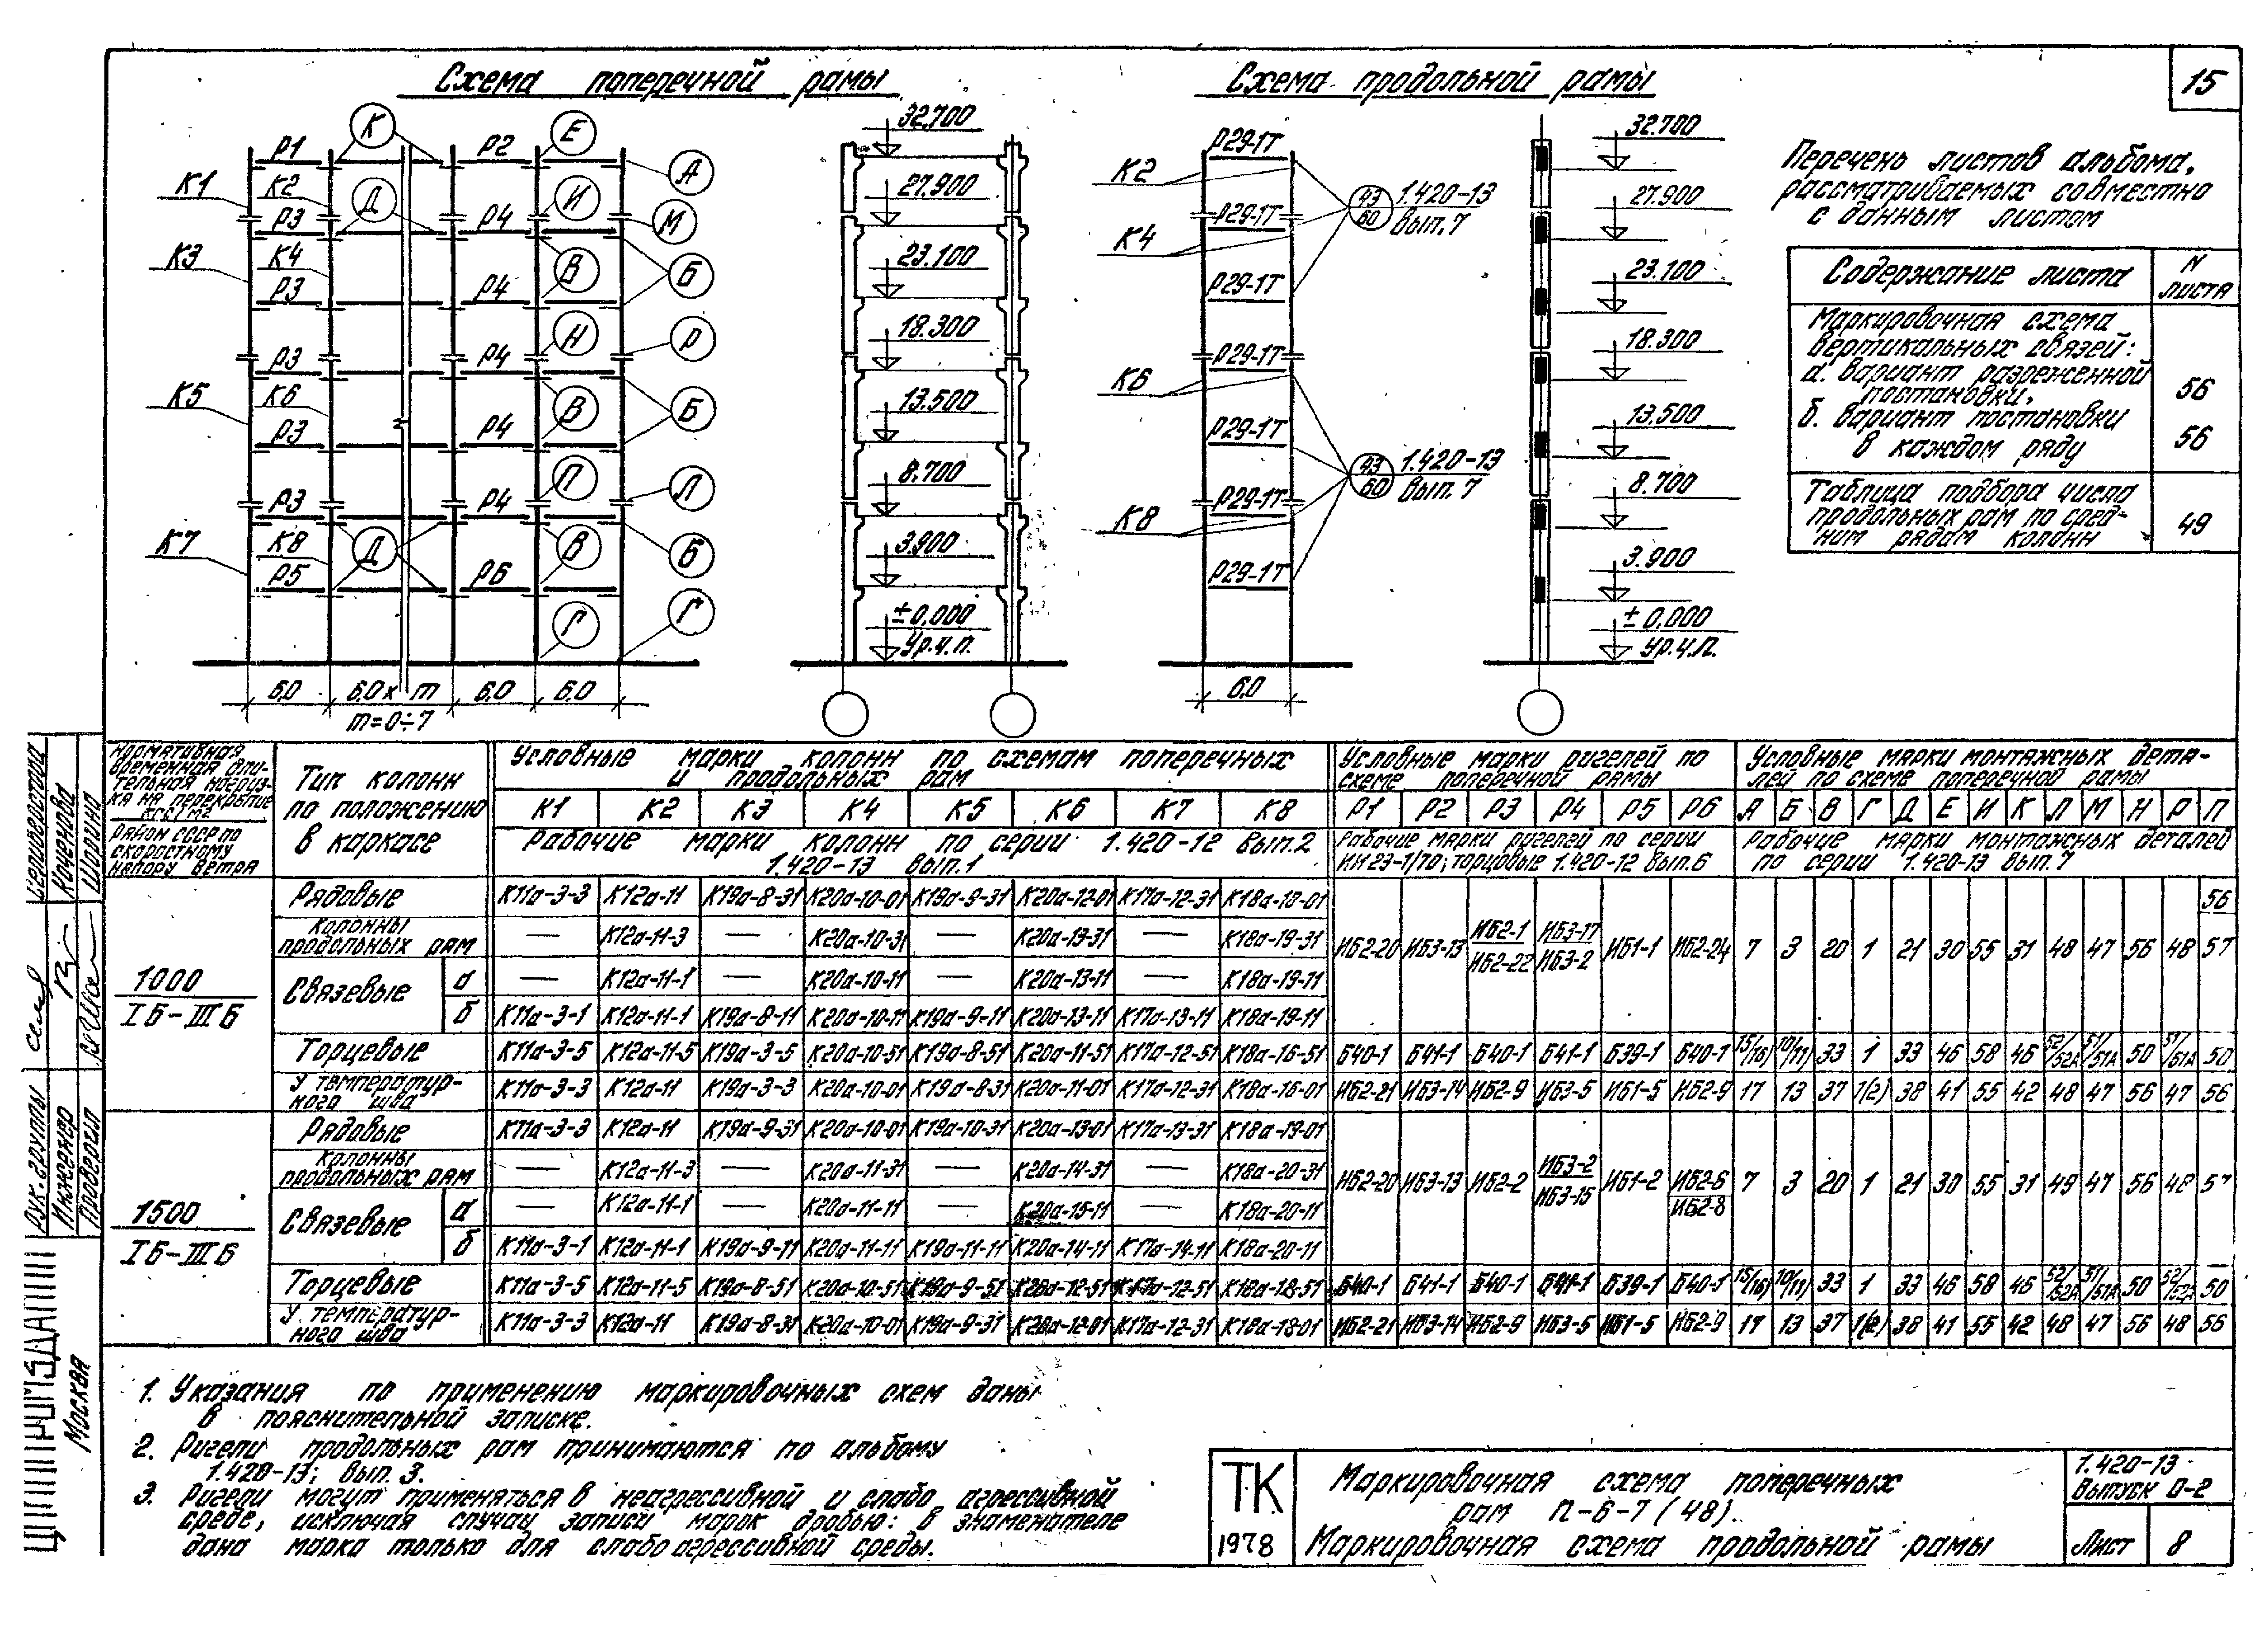 15
Схема поперечной рамы
Схема продольной рамы
Р1 К Р2 Е А
К1 К2 Д И
Р3 Р4 М
К3 К4 В Б
Р3 Р4
Н Р
Р3 Р4
К5 К6 В Б
Р3 Р4
П Л
Р3 Р4
К7 К8 Д В Б
Р5 Р6
Г Г
6.0 6.0 х m 6.0 6.0
m=0÷7
32.700
27.900
23.100
18.300
13.500
8.700
3.900
±0.000
Ур.ч.п.
К2 Р29-1Т
К4 Р29-1Т
Р29-1Т
К6 Р29-1Т
Р29-1Т
К8 Р29-1Т
Р29-1Т
6.0
43 1.420-13
60 Вып. 7
43 1.420-13
60 Вып. 7
32.700
27.900
23.100
18.300
13.500
8.700
3.900
±0.000
Ур.ч.п.
Перечень листов альбома,
рассматриваемых совместно
с данным листом
Содержание листа N листа
Маркировочная схема
вертикальных связей:
а. вариант разреженной
постановки, 56
б. вариант постановки
в каждом ряду 56
Таблица подбора числа
продольных рам по сред-
ним рядам колонн 49
Нормативная
временная дли-
тельная нагруз-
ка на перекрытие
кгс/м2
Район СССР по
скоростному
напору ветра
Тип колонн
по положению
в каркасе
Условные марки колонн по схемам поперечных
и продольных рам
К1 К2 К3 К4 К5 К6 К7 К8
Рабочие марки колонн по серии 1.420-12 вып.2
1.420-13 вып.1
Условные марки ригелей по
схеме поперечной рамы
Р1 Р2 Р3 Р4 Р5 Р6
Рабочие марки ригелей по серии
ИИ23-1/70; торцовые 1.420-12 вып.6
Условные марки монтажных дета-
лей по схеме поперечной рамы
А Б В Г Д Е И К Л М Н Р П
Рабочие марки монтажных деталей
по серии 1.420-13 вып. 7
1000
IБ-IIIБ
Рядовые К11а-3-3 К12а-11 К19а-8-31 К20а-10-01 К19а-9-31 К20а-12-01 К17а-12-31 К18а-18-01
Колонны
продольных рам — К12а-11-3 — К20а-10-31 — К20а-13-31 — К18а-19-31
Связевые а — К12а-11-1 — К20а-10-11 — К20а-13-11 — К18а-19-11
б К11а-3-1 К12а-11-1 К19а-8-11 К20а-10-11 К19а-9-11 К20а-13-11 К17а-13-11 К18а-19-11
ИБ2-20 ИБ3-13 ИБ2-1/ИБ2-22 ИБ3-17/ИБ3-2 ИБ1-1 ИБ2-24 7 3 20 1 21 30 55 31 48 47 56 48 56/57
Торцевые К11а-3-5 К12а-11-5 К19а-3-5 К20а-10-51 К19а-8-51 К20а-11-51 К17а-12-51 К18а-16-51 Б40-1 Б41-1 Б40-1 Б41-1 Б39-1 Б40-1 15/(16) 10/(11) 33 1 33 46 58 46 52/52А 51/51А 50 51/51А 50
У температур-
ного шва К11а-3-3 К12а-11 К19а-3-3 К20а-10-01 К19а-8-31 К20а-11-01 К17а-12-31 К18а-16-01 ИБ2-21 ИБ3-14 ИБ2-9 ИБ3-5 ИБ1-5 ИБ2-9 17 13 37 1(2) 38 41 55 42 48 47 56 47 56
1500
IБ-IIIБ
Рядовые К11а-3-3 К12а-11 К19а-9-31 К20а-10-01 К19а-10-31 К20а-13-01 К17а-13-31 К18а-19-01
Колонны
продольных рам — К12а-11-3 — К20а-11-31 — К20а-14-31 — К18а-20-31
Связевые а — К12а-11-1 — К20а-11-11 — К20а-15-11 — К18а-20-11
б К11а-3-1 К12а-11-1 К19а-9-11 К20а-11-11 К19а-11-11 К20а-14-11 К17а-14-11 К18а-20-11
ИБ2-20 ИБ3-13 ИБ2-2 ИБ3-2/ИБ3-15 ИБ1-2 ИБ2-6/ИБ2-8 7 3 20 1 21 30 55 31 49 47 56 48 57
Торцевые К11а-3-5 К12а-11-5 К19а-8-51 К20а-10-51 К19а-9-51 К20а-12-51 К17а-12-51 К18а-18-51 Б40-1 Б41-1 Б40-1 Б41-1 Б39-1 Б40-1 15/(16) 10/(11) 33 1 33 46 58 46 52/52А 51/51А 50 52/52А 50
У температур-
ного шва К11а-3-3 К12а-11 К19а-8-31 К20а-10-01 К19а-9-31 К20а-12-01 К17а-12-31 К18а-18-01 ИБ2-21 ИБ3-14 ИБ2-9 ИБ3-5 ИБ1-5 ИБ2-9 17 13 37 1(2) 38 41 55 42 48 47 56 48 56
1. Указания по применению маркировочных схем даны
в пояснительной записке.
2. Ригели продольных рам принимаются по альбому
1.420-13; вып. 3.
3. Ригели могут применяться в неагрессивной и слабо агрессивной
среде, исключая случаи записи марок дробью: в знаменателе
дана марка только для слабо агрессивной среды.
ТК
1978
Маркировочная схема поперечных
рам П-6-7 (48).
Маркировочная схема продольной рамы
1.420-13
Выпуск 0-2
Лист 8
Рук. группы Селиверстов
Инженер Коченова
Проверил Шорина
Москва